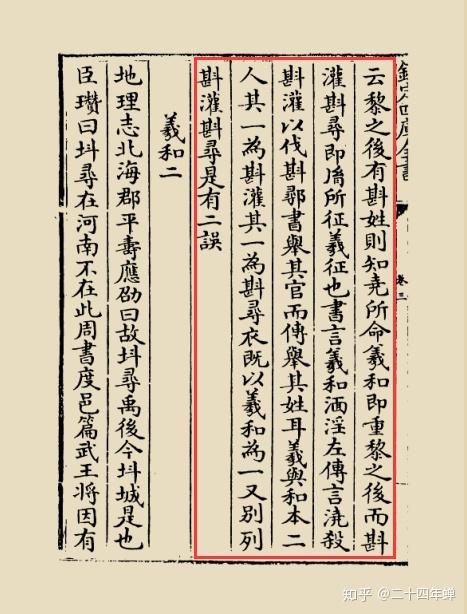 欽定四庫全書
卷三
云黎之後有斟姓則知堯所命羲和即重黎之後而斟
灌斟尋即胤所征羲征也書言羲和湎淫左傳言澆殺
斟灌以伐斟鄩書舉其官而傳舉其姓耳羲與和本二
人其一為斟灌其一為斟尋衣既以羲和為一又別列
斟灌斟尋是有二誤
羲和二
地理志北海郡平壽應劭曰故抖尋禹後今抖城是也
臣瓚曰抖尋在河南不在此周書度邑篇武王將因有
知乎 @二十四年蝉